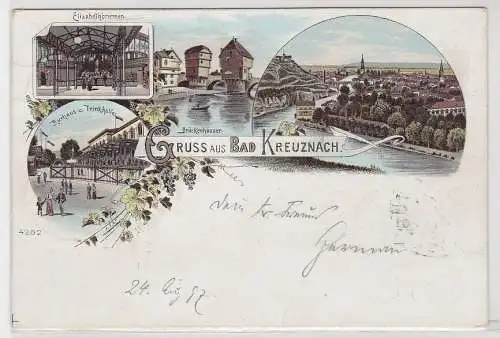 Elisabethbrunnen.
Kurhaus u. Trinkhalle
Brückenhäuser
GRUSS AUS BAD KREUZNACH.
4262
Dein
Freund
Herman
24. Aug 97